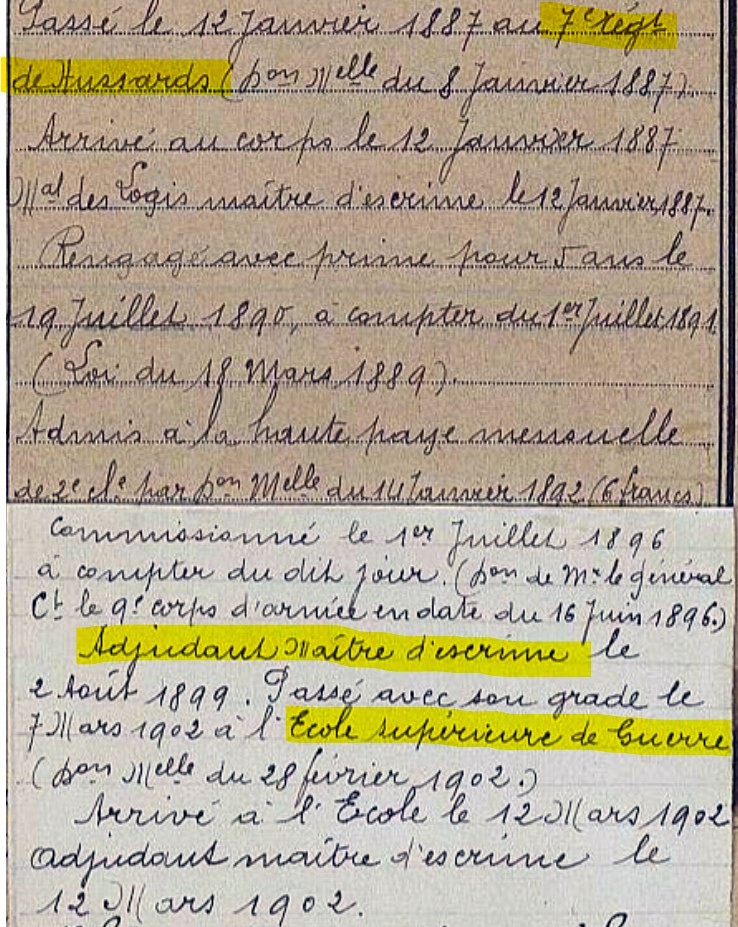 Passé le 12 Janvier 1887 au 7e Régt
de Hussards (pon Melle du 8 Janvier 1887).
Arrivé au corps le 12 Janvier 1887
Mal des Logis maître d'escrime le 12 Janvier 1887.
Rengagé avec prime pour 5 ans le
19 Juillet 1890, à compter du 1er Juillet 1891
(Loi du 18 Mars 1889).
Admis à la haute paye mensuelle
de 2e cle par pon Melle du 14 Janvier 1892 (6 francs)
Commissionné le 1er Juillet 1896
à compter du dit jour. (pon de Mr le général
Ct le 9e corps d'armée en date du 16 Juin 1896.)
Adjudant Maître d'escrime le
2 Août 1899. Passé avec son grade le
7 Mars 1902 à l'Ecole supérieure de Guerre
(pon Melle du 28 février 1902.)
Arrivé à l'Ecole le 12 Mars 1902
adjudant maître d'escrime le
12 Mars 1902.